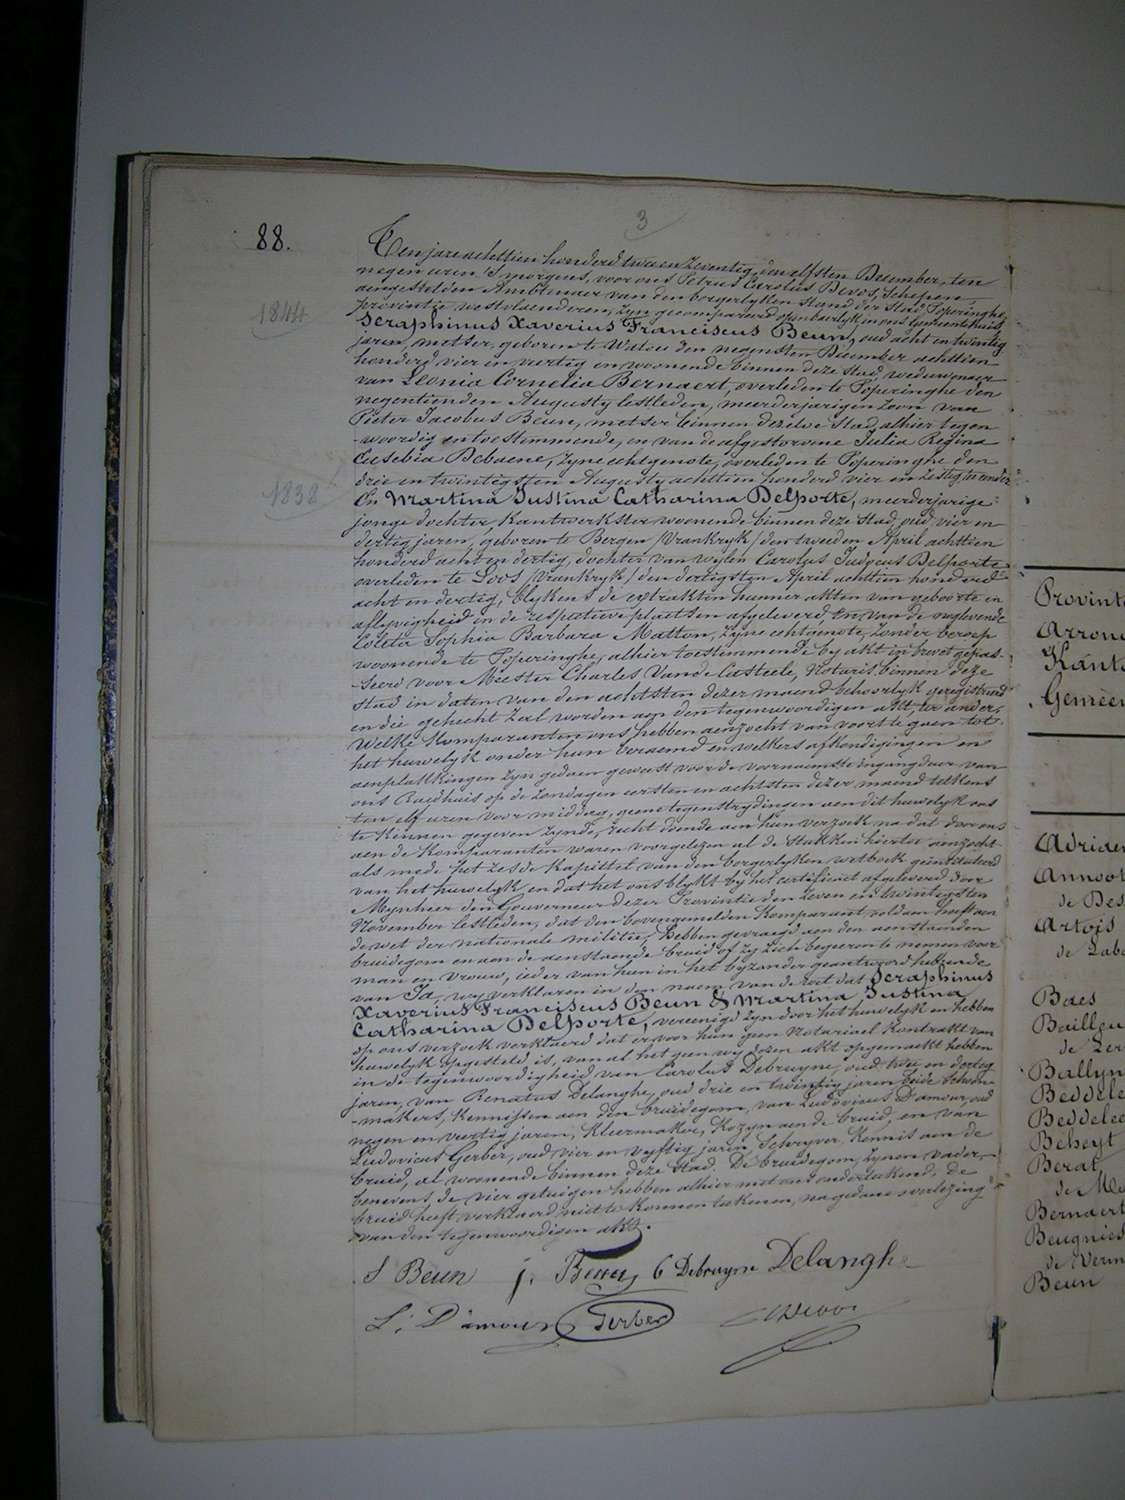 3
88.
Ten jare achttien honderd twee en zeventig, den elfsten December, ten
negen uren 's morgens, voor ons Petrus Carolus Devos, Schepen
aengestelden Ambtenaer van den borgerlyken stand der Stad Poperinghe,
provintie westvlaenderen, zyn gecompareerd openbaerlyk in ons Gemeentehuis
1844
Seraphinus Xaverius Franciscus Beun, oud acht en twintig
jaren, metser, geboren te Watou den negensten December achttien
honderd vier en veertig en woonende binnen deze Stad, weduwenaer
van Leonia Cornelia Bernaert, overleden te Poperinghe den
negentienden Augusty lestleden, meerderjarigen zoon van
Pieter Jacobus Beun, metser binnen dezelve Stad, alhier tegen
-woordig en toestemmende, en van de afgestorvene Julia Regina
Eusebia Debaene, zyne echtgenote, overleden te Poperinghe den
drie en twintigsten Augusty achttien honderd vier en zestig, ter eender
1838
En Martina Justina Catharina Delporte, meerderjarige
jonge dochter, Kantwerkster woonende binnen deze Stad, oud vier en
dertig jaren, geboren te Bergen /Vrankryk/ den tweeden April achttien
honderd acht en dertig, dochter van wylen Carolus Judocus Delporte
overleden te Loos /Vrankryk/ den dertigsten April achttien honderd
acht en dertig, blykens de extrakten hunner akten van geboorte en
aflyvigheid in de respective plaetsen afgeleverd, en van de nuglevende
Coleta Sophia Barbara Matton, zyne echtgenote, zonder beroep
woonende te Poperinghe, alhier toestemmende by akt in brevet gepas-
-seerd voor Meester Charles Vande Casteele, Notaris binnen deze
stad in daten van den achtsten dezer maend behoorlyk geregistreerd
en die gehecht zal worden aen den tegenwoordigen akt, ter ander.
Welke Komparanten ons hebben aenzocht van voort te gaen tot
het huwelyk onder hun beraemd en welkers afkondigingen en
aenplakkingen zyn gedaen geweest voor de voornaemste ingangdeur van
ons Raedhuis op de zondagen eersten en achtsten dezer maend telkens
ten elf uren voor middag, geene tegenstrydingen aen dit huwelyk ons
te kennen gegeven zynde, recht doende aen hun verzoek na dat door ons
aen de Komparanten waren voorgelezen al de stukken hiertoe aenzocht
als mede het zesde Kapittel van den borgerlyken wetboek geintituleerd
van het huwelyk en dat het ons blykt by het certificaet afgeleverd door
Mynheer den Gouverneur dezer Provintie den zeven en twintigsten
November lestleden, dat den bovengemelden Komparant voldaen heeft aen
de wet der nationale militie, Hebben gevraegd aen den aenstaenden
bruidegom en aen de aenstaende bruid of zy zich begeeren te nemen voor
man en vrouw, ieder van hun in het byzonder geantwoord hebbende
van Ja, wy verklaren in den naem van de wet dat Seraphinus
Xaverius Franciscus Beun & Martina Justina
Catharina Delporte, vereenigd zyn door het huwelyk en hebben
op ons verzoek verklaerd dat er voor hun geen Notariael Kontrakt van
huwelyk opgesteld is, van al het gen wy dezen akt opgemaekt hebben
in de tegenwoordigheid van Carolus Debruyne, oud twee en dertig
jaren, van Renatus Delanghe, oud drie en twintig jaren, beide schoen-
-makers, Kennissen aen den bruidegom, van Ludovicus D'amour, oud
negen en veertig jaren, Kleermaker, Kozyn aen de bruid, en van
Ludovicus Gerber, oud vier en vyftig jaren, Schryver, Kennis aen de
bruid, al woonende binnen deze Stad. De bruidegom, zynen vader,
benevens de vier getuigen hebben alhier met ons onderteekend; de
bruid heeft verklaerd niet te konnen teekenen, na gedane voorlezing
van den tegenwoordigen akt.
S Beun j. Beun C Debruyne Delanghe
L. D'amour Gerber CDevos
Provinti
Arron
Kant
Gemeen
Adriaen
Annoot
de Bes
Artois
de Lab
Baes
Bailleu
de Zer
Ballyn
Beddele
Beddelee
Beheyt
Berat
de Me
Bernaert
Beugnies
de Verm
Beun